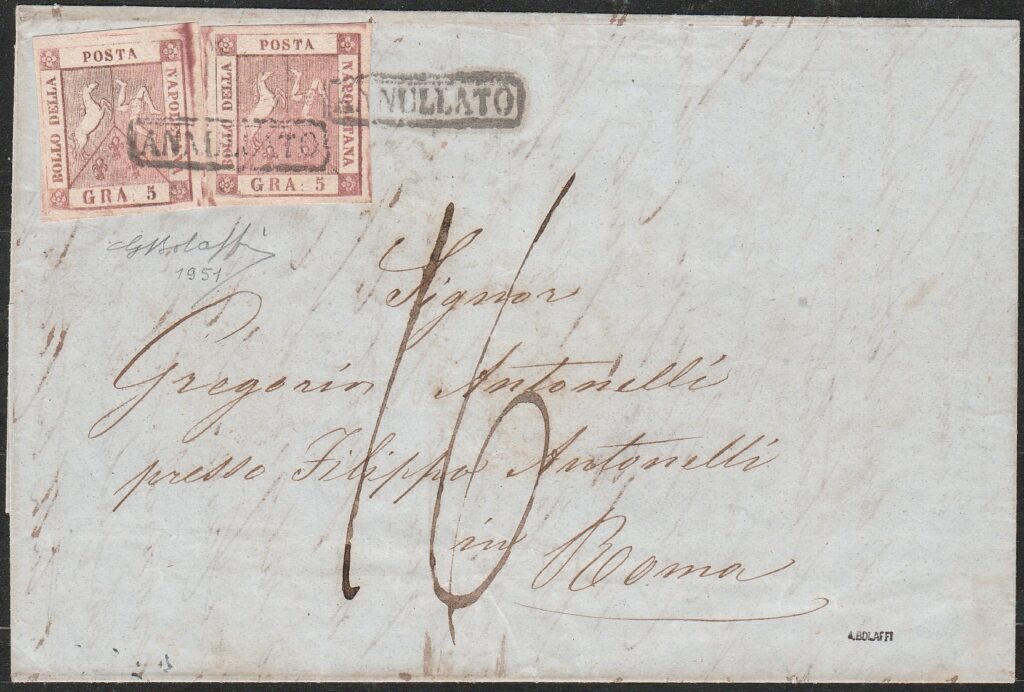 POSTA
BOLLO DELLA
NAPOLETANA
GRA 5
POSTA
BOLLO DELLA
NAPOLETANA
GRA 5
ANNULLATO
ANNULLATO
GBolaffi
1951
16
Signor
Gregorio Antonelli
presso Filippo Antonelli
in Roma
A.BOLAFFI